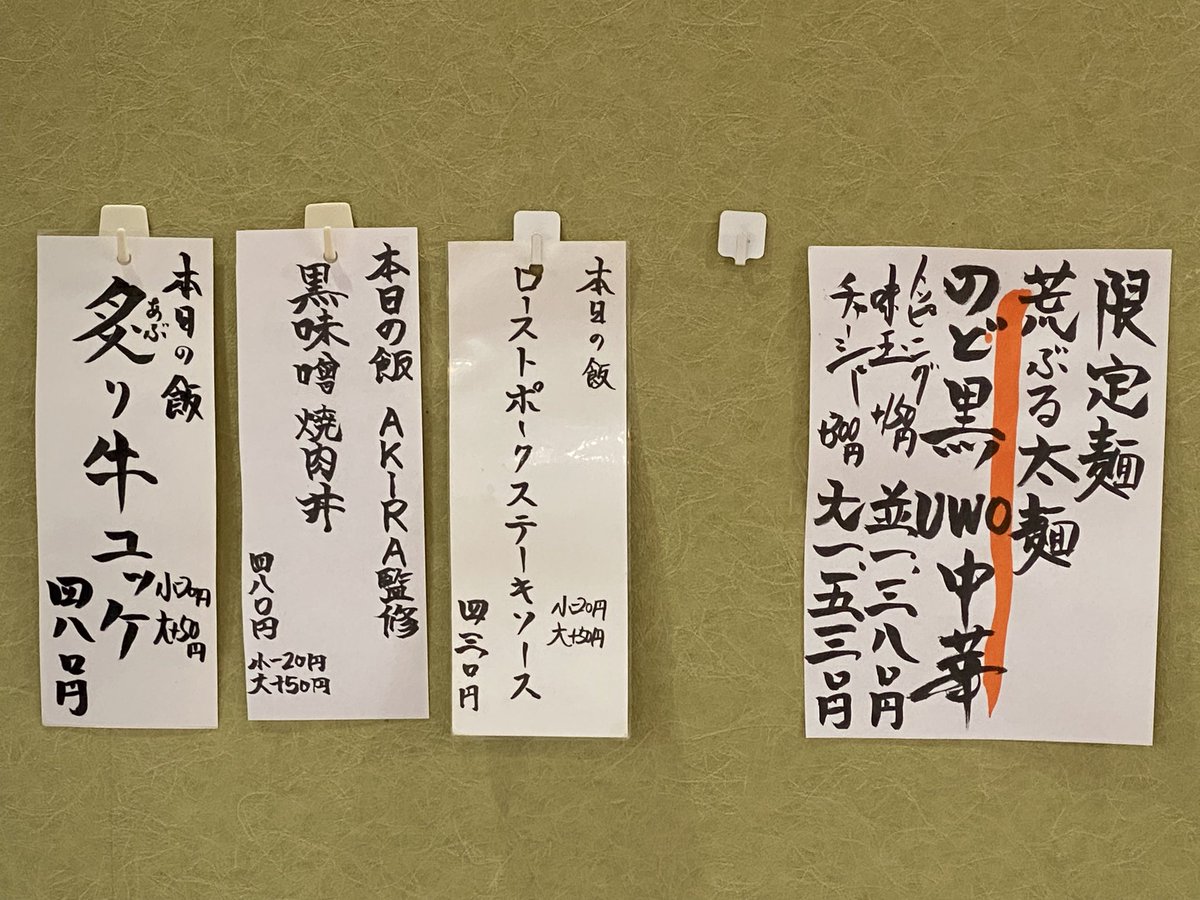 限定麺
荒ぶる太麺
のど黒 UWO中華
トッピング
味玉
チャーシュー +300円
並一、三八〇円
大一、五三〇円
本日の飯
ローストポークステーキソース
小-20円
大+50円
四三〇円
本日の飯 AKIRA監修
黒味噌焼肉丼
四八〇円
小-20円
大+50円
本日の飯
炙り牛ユッケ
あぶ
小-20円
大+50円
四八〇円